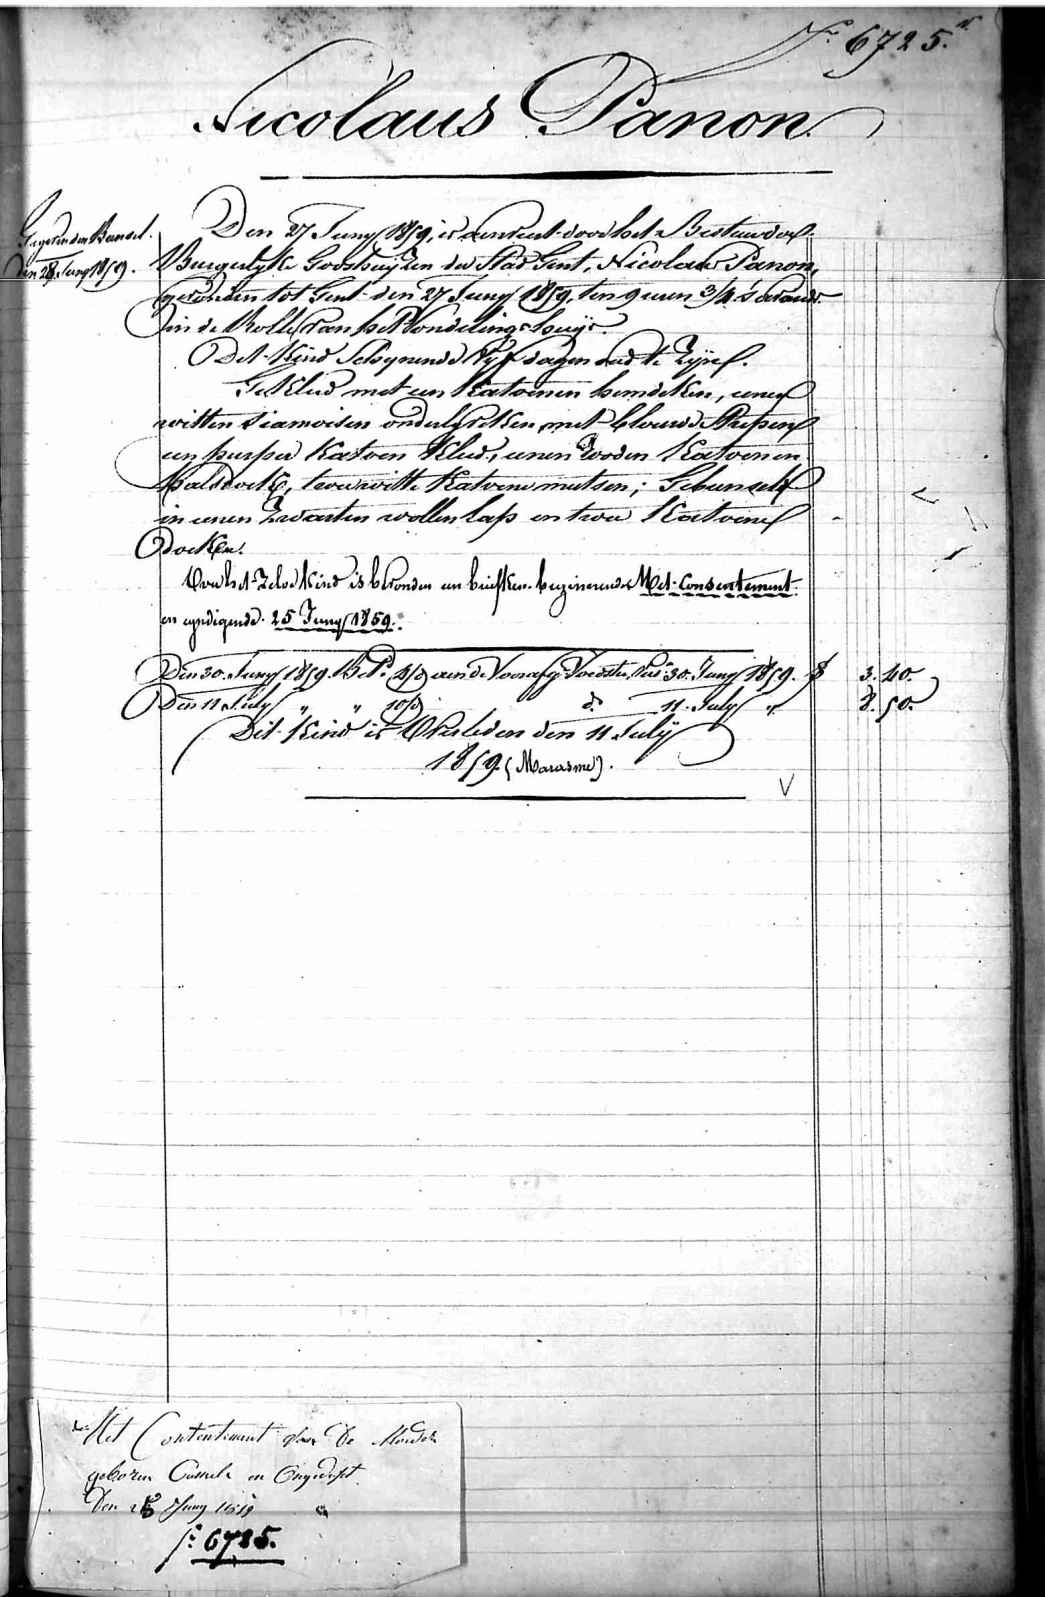 N.º 6725.
Nicolaus Panon
Den 28 Juny 1859.
Den 27 Juny 1859, is aenveert door het Bestuer der
Burgerlyke Godshuyzen der Stad Gent, Nicolaus Panon,
gevonden tot Gent den 27 Juny 1859, ten 9 uren 3/4 's avonds
in de Rolle van het Vondelinghuys.
Dit Kind schynende vyf dagen oud te zyn.
Gekleed met een Katoenen hemdeken, eenen
witten siamoisen onderlyveken met blauwe strepen
een purper Katoen Kleed, eenen rooden Katoenen
halsdoek, twee witte Katoene mutsen; Gebunseld
in eenen zwarten wollen lap en twee Katoene
doeken.
Over het zelve Kind is bevonden een briefken beginnende Met Consentement
en eyndigende 25 Juny 1859.
Den 30 Juny 1859. Bet. 4/d aen de Voorzg. Voedster, sed. 30 Juny 1859. f 3.40.
Den 11 July " " 10/d dº 11 July " 8.50.
Dit Kind is Overleden den 11 July
1859. (Marasme).
Met Contentement van De Moeder
geboren en Ongedopt
Den 25 Juny 1859
Nº 6725.